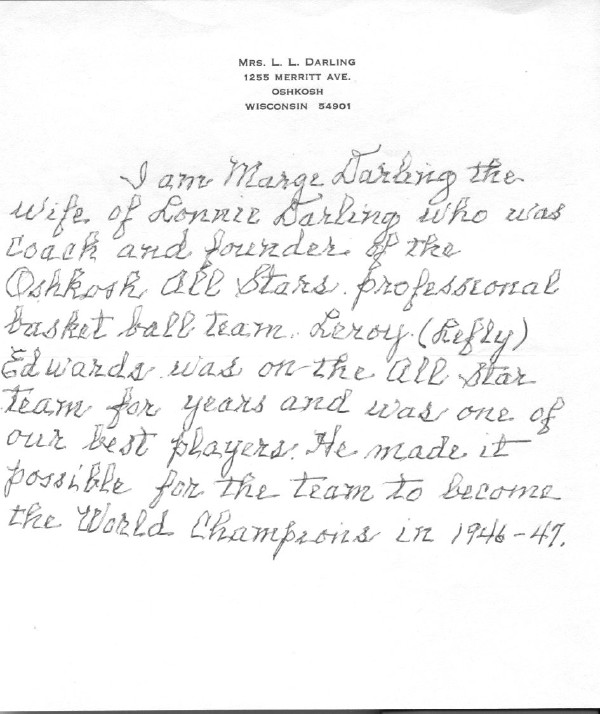 MRS. L. L. DARLING
1255 MERRITT AVE.
OSHKOSH
WISCONSIN 54901
I am Marge Darling the
wife of Lonnie Darling who was
coach and founder of the
Oshkosh All Stars professional
basket ball team. Leroy (Lefty)
Edwards was on the All Star
team for years and was one of
our best players. He made it
possible for the team to become
the World Champions in 1946-47.